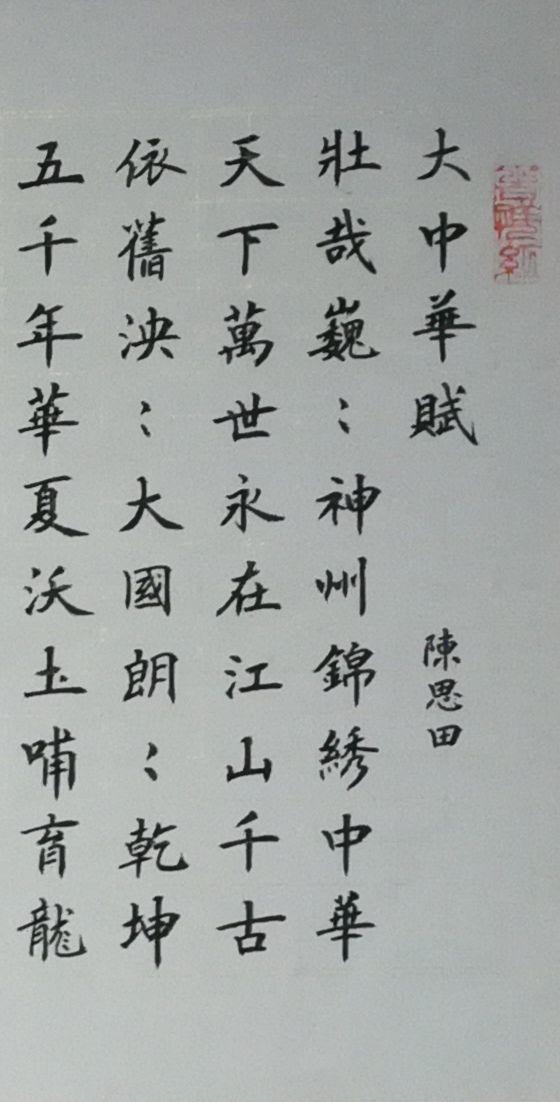 大中華賦
陳思田
壯哉巍：神州錦綉中華
天下萬世永在江山千古
依舊泱：大國朗：乾坤
五千年華夏沃土哺育龍